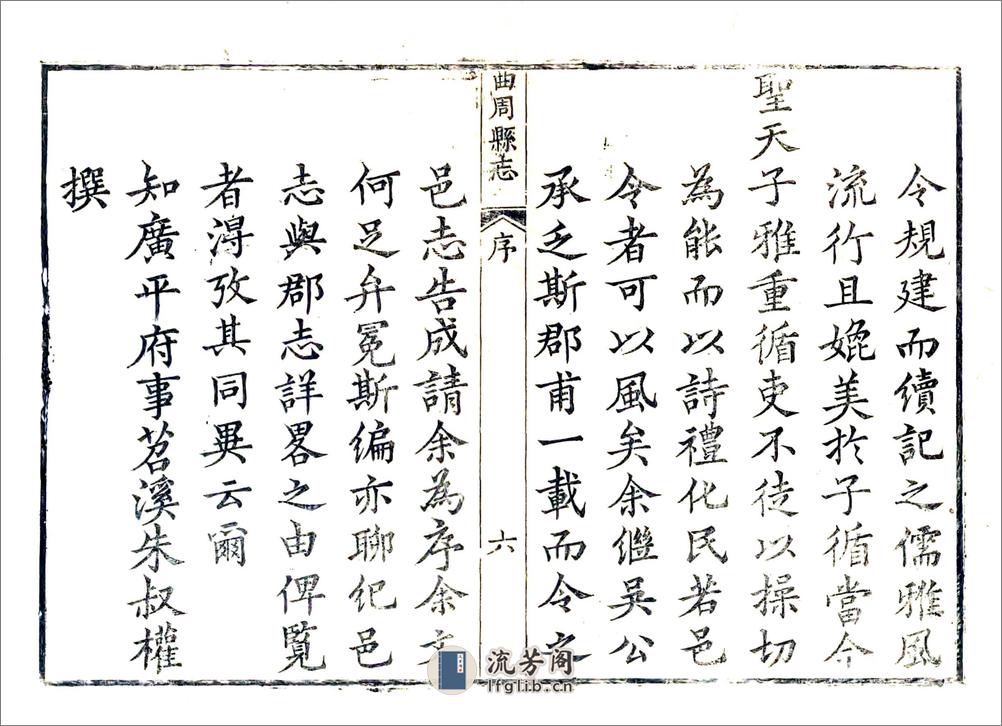 令規建而續記之儒雅風
流行且媲美於子循當今
聖天子雅重循吏不徒以操切
為能而以詩禮化民若邑
令者可以風矣余繼吳公
承乏斯郡甫一載而令以
曲周縣志
序
六
邑志告成請余為序余文
何足弁冕斯编亦聊纪邑
志與郡志詳畧之由俾覧
者淂攷其同異云爾
知廣平府事苕溪朱叔權
撰
流芳阁
lfglib.cn